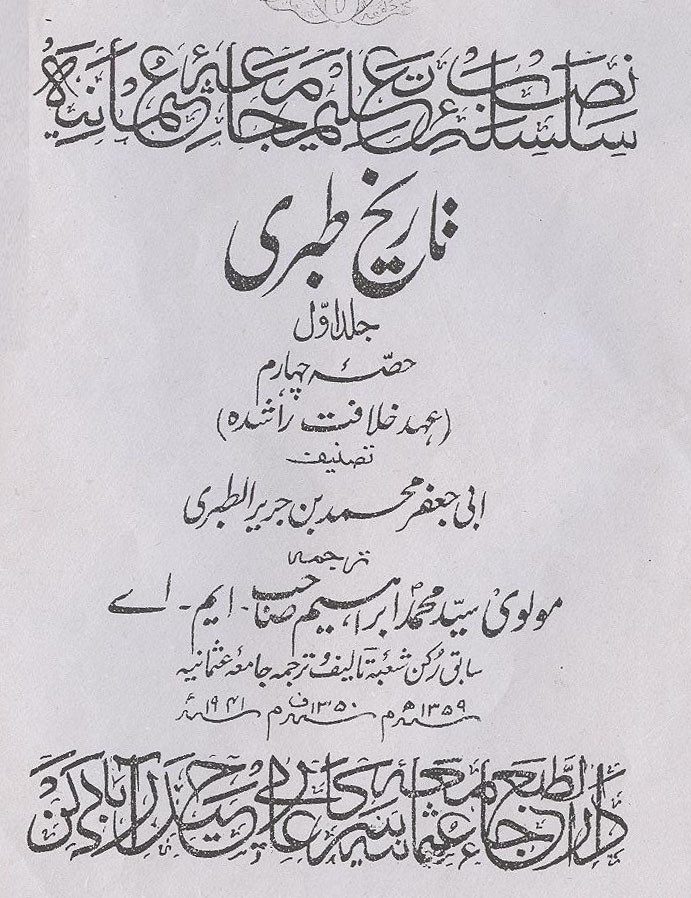 سلسلۂ نصاب تعلیم جامعۂ عثمانیہ
تاریخ طبری
جلد اوّل
حصّہ چہارم
(عہد خلافت راشدہ)
تصنیف
ابی جعفر محمد بن جریر الطبری
ترجمہ
مولوی سیّد محمد ابراہیم صاحب - ایم - اے
سابق رکن شعبۂ تالیف و ترجمہ جامعۂ عثمانیہ
۱۳۵۹ھ م ۱۳۵۰ف م ۱۹۴۱ء
دار الطبع جامعۂ عثمانیہ سرکار عالی حیدرآباد دکن